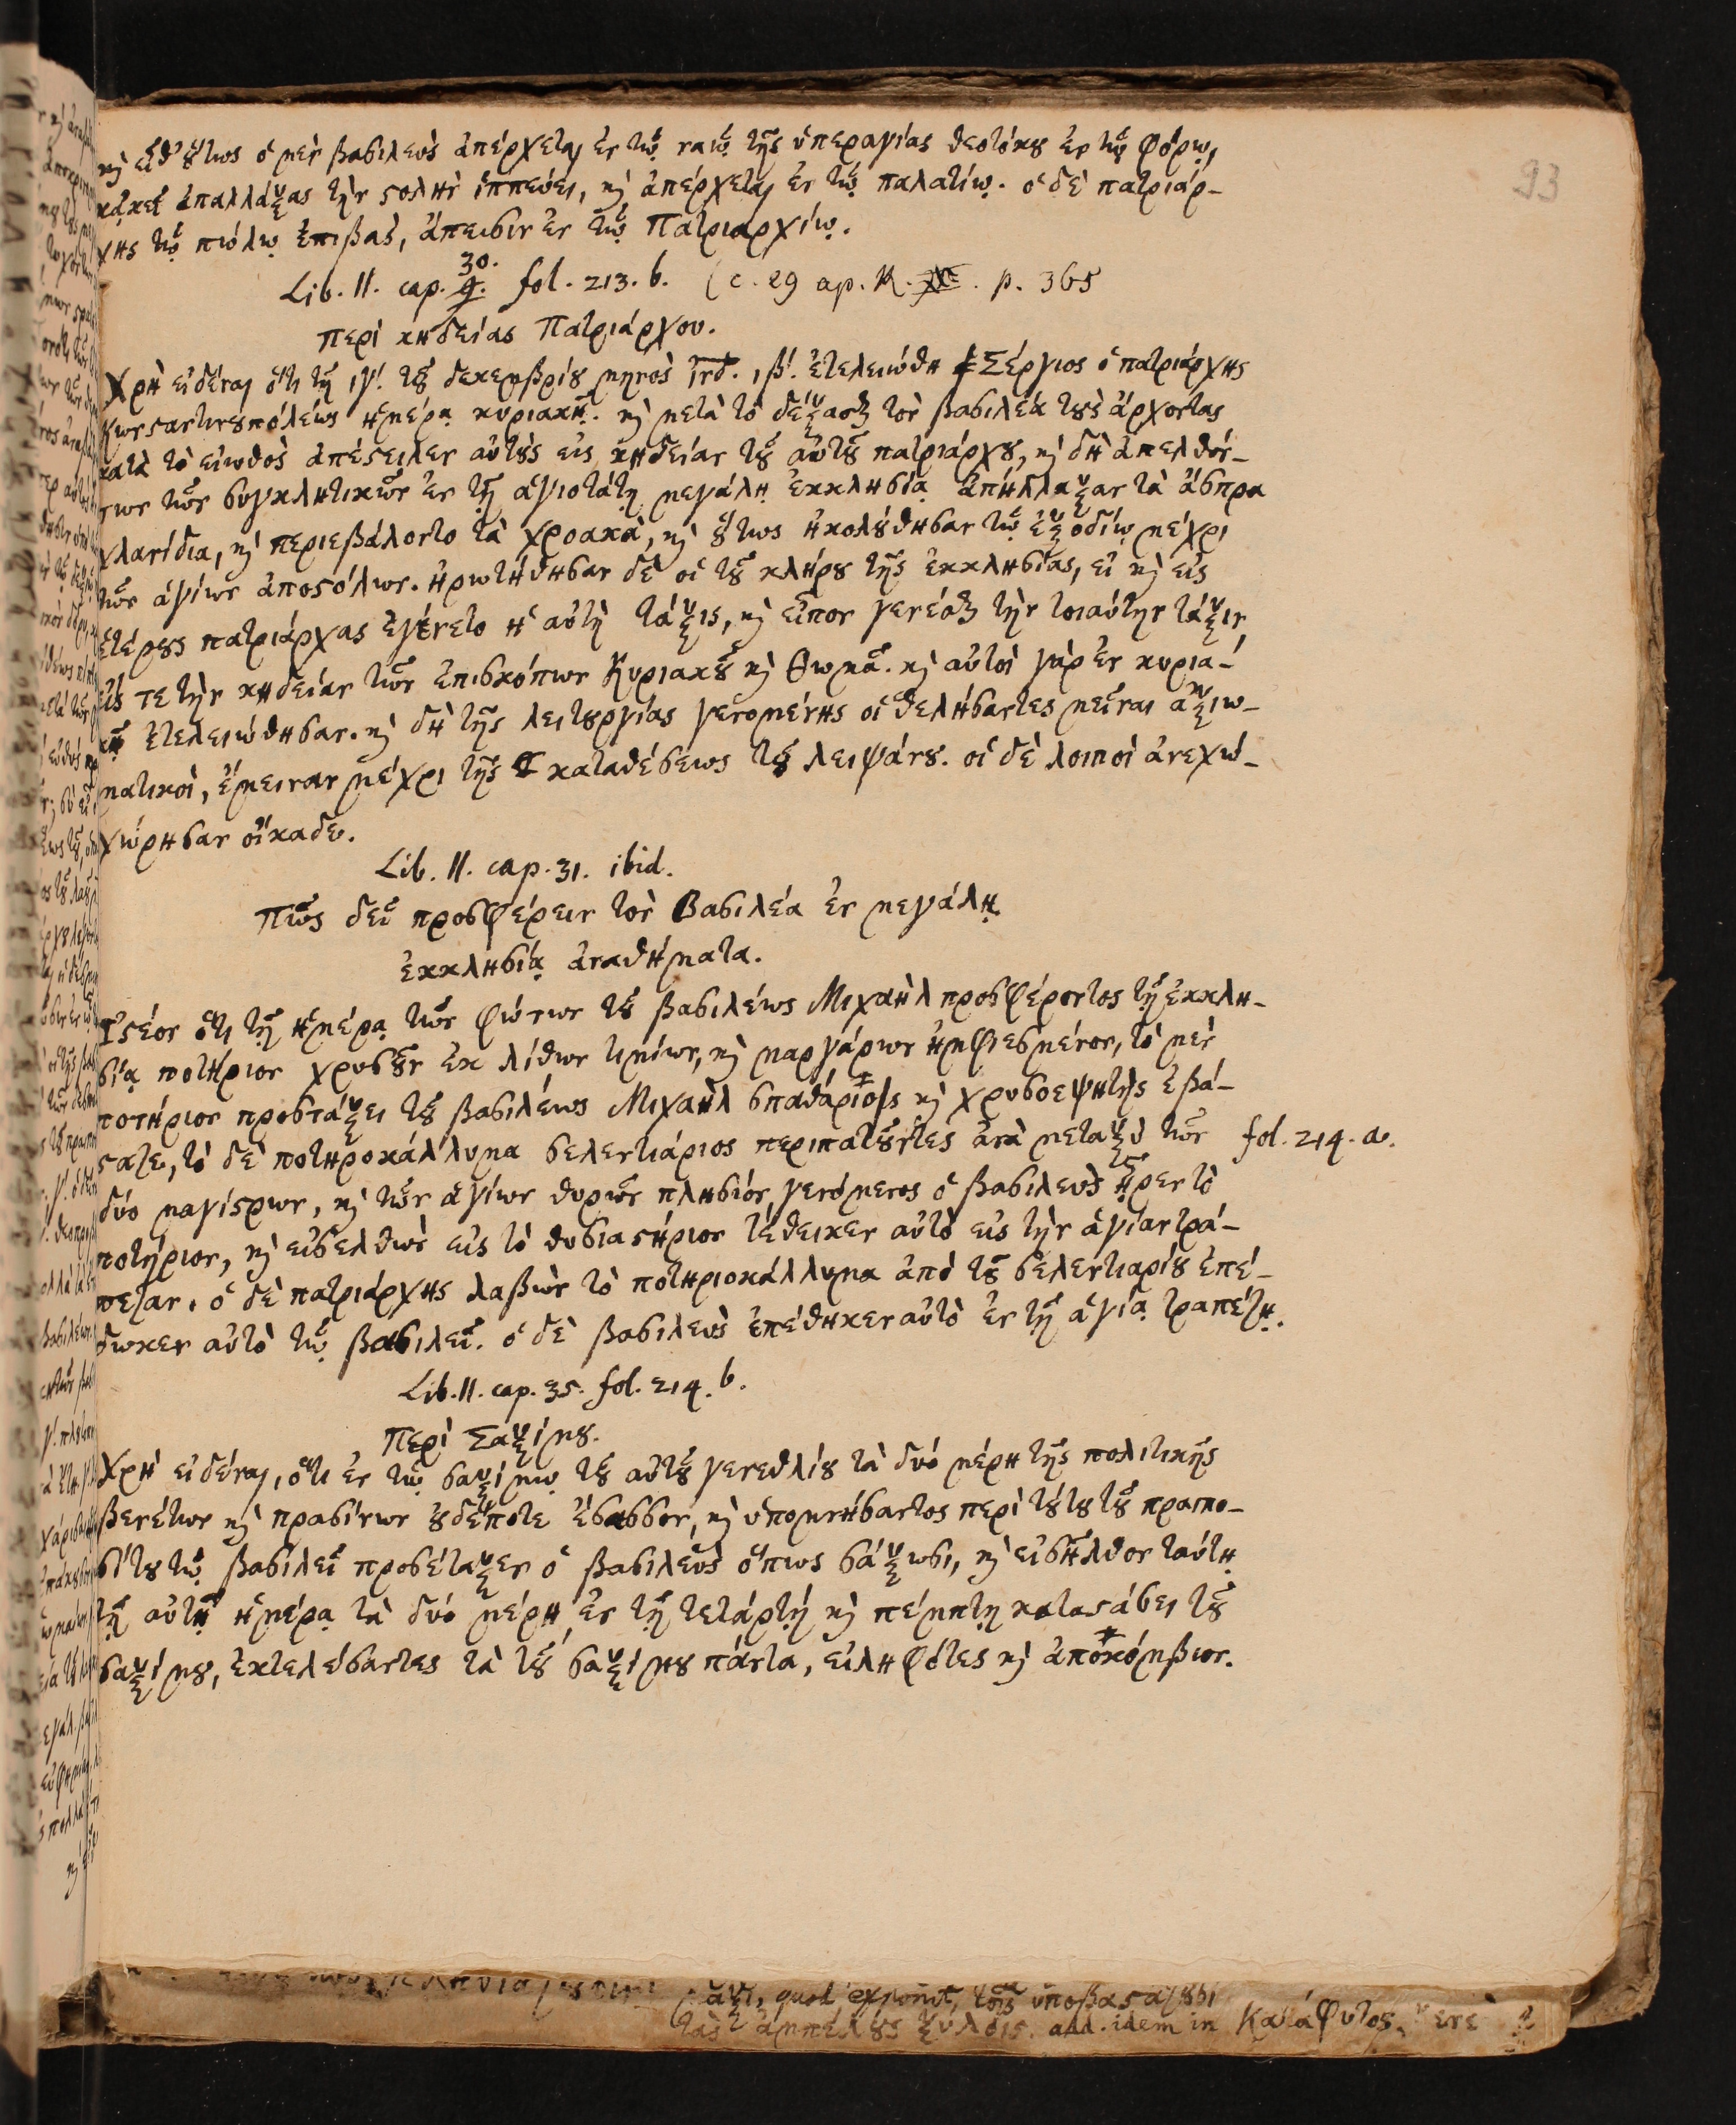 93
καὶ εἶθ' οὕτως ὁ μὲν βασιλεὺς ἀπέρχεται ἐν τῷ ναῷ τῆς ὑπεραγίας θεοτόκου ἐν τῷ φόρῳ,
κἀκεῖ ἀπαλλάξας τὴν στολὴν ἱππεύει, καὶ ἀπέρχεται ἐν τῷ παλατίῳ. ὁ δὲ πατριάρ-
χης τῷ πώλῳ ἐπιβὰς, ἄπεισιν ἐν τῷ Πατριαρχίῳ.
Lib. II. cap. 30. fol. 213. b. (c. 29 ap. R. p. 365
Περὶ κηδείας Πατριάρχου.
Χρὴ εἰδέναι ὅτι τῇ ιγ'. τοῦ δεκεμβρίου μηνὸς ἰνδ. ιβ'. ἐτελειώθη Σέργιος ὁ πατριάρχης
Κωνσταντινουπόλεως ἡμέρᾳ κυριακῇ. καὶ μετὰ τὸ δέξασθαι τὸν βασιλέα τοὺς ἄρχοντας
κατὰ τὸ εἰωθὸς ἀπέστειλεν αὐτοὺς εἰς κηδείαν τοῦ αὐτοῦ πατριάρχου, καὶ δὴ ἀπελθόν-
των τῶν συγκλητικῶν ἐν τῇ ἁγιοτάτῃ μεγάλῃ ἐκκλησίᾳ ἀπήλλαξαν τὰ ἄσπρα
χλανίδια, καὶ περιεβάλοντο τὰ χροακὰ, καὶ οὕτως ἠκολούθησαν τῷ ἐξοδίῳ μέχρι
τῶν ἁγίων ἀποστόλων. ἠρωτήθησαν δὲ οἱ τοῦ κλήρου τῆς ἐκκλησίας, εἰ καὶ εἰς
ἑτέρους πατριάρχας ἐγένετο ἡ αὐτὴ τάξις, καὶ εἶπον γενέσθαι τὴν τοιαύτην τάξιν
εἰς τε τὴν κηδείαν τῶν ἐπισκόπων Κυριακοῦ καὶ Θωμᾶ. καὶ αὐτοὶ γὰρ ἐν κυρια-
κῇ ἐτελειώθησαν. καὶ δὴ τῆς λειτουργίας γενομένης οἱ θελήσαντες μεῖναι ἀξιω-
ματικοὶ, ἔμειναν μέχρι τῆς καταθέσεως τοῦ λειψάνου. οἱ δὲ λοιποὶ ἀνεχώ-
χώρησαν οἴκαδε.
Lib. II. cap. 31. ibid.
Πῶς δεῖ προσφέρειν τὸν Βασιλέα ἐν μεγάλῃ
ἐκκλησίᾳ ἀναθήματα.
Ἰστέον ὅτι τῇ ἡμέρᾳ τῶν φώτων τοῦ βασιλέως Μιχαὴλ προσφέροντος τῇ ἐκκλη-
σίᾳ ποτήριον χρυσοῦν ἐκ λίθων τιμίων, καὶ μαργάρων ἠμφιεσμένον, τὸ μὲν
ποτήριον προστάξει τοῦ βασιλέως Μιχαὴλ σπαθάριος καὶ χρυσοεψητὴς ἐβά-
σταζε, τὸ δὲ ποτηροκάλλυμα σελεντιάριος περιπατοῦντες ἀνὰ μεταξὺ τῶν fol. 214. a.
δύο μαγίστρων, καὶ τῶν ἁγίων θυρῶν πλησίον γενόμενος ὁ βασιλεὺς ᾖρεν τὸ
ποτήριον, καὶ εἰσελθὼν εἰς τὸ θυσιαστήριον τέθεικεν αὐτὸ εἰς τὴν ἁγίαν τρά-
πεζαν. ὁ δὲ πατριάρχης λαβὼν τὸ ποτηριοκάλλυμα ἀπὸ τοῦ σελεντιαρίου ἐπέ-
δωκεν αὐτὸ τῷ βασιλεῖ. ὁ δὲ βασιλεὺς ἐπέθηκεν αὐτὸ ἐν τῇ ἁγίᾳ τραπέζῃ.
Lib. II. cap. 35. fol. 214. b.
Περὶ Σαξίμου.
Χρὴ εἰδέναι, ὅτι ἐν τῷ σαξίμῳ τοῦ αὐτοῦ γενεθλίου τὰ δύο μέρη τῆς πολιτικῆς
βενέτων καὶ πρασίνων οὐδέποτε ἔσασσον, καὶ ὑπομνήσαντος περὶ τούτου τοῦ πραιπο-
σίτου τῷ βασιλεῖ προσέταξεν ὁ βασιλεὺς ὅπως σάξωσι, καὶ εἰσῆλθον ταύτῃ
τῇ αὐτῇ ἡμέρᾳ τὰ δύο μέρη ἐν τῇ τετάρτῃ καὶ πέμπτῃ καταστάσει τοῦ
σαξίμου, ἐκτελέσαντες τὰ τοῦ σαξίμου πάντα, εἰληφότες καὶ ἀποκόμβιον.
quod exponit, τοῖς ὑποβαστάζουσι
τὰς ἀμπέλους ξύλοις. add. idem in Κατάφυτος.